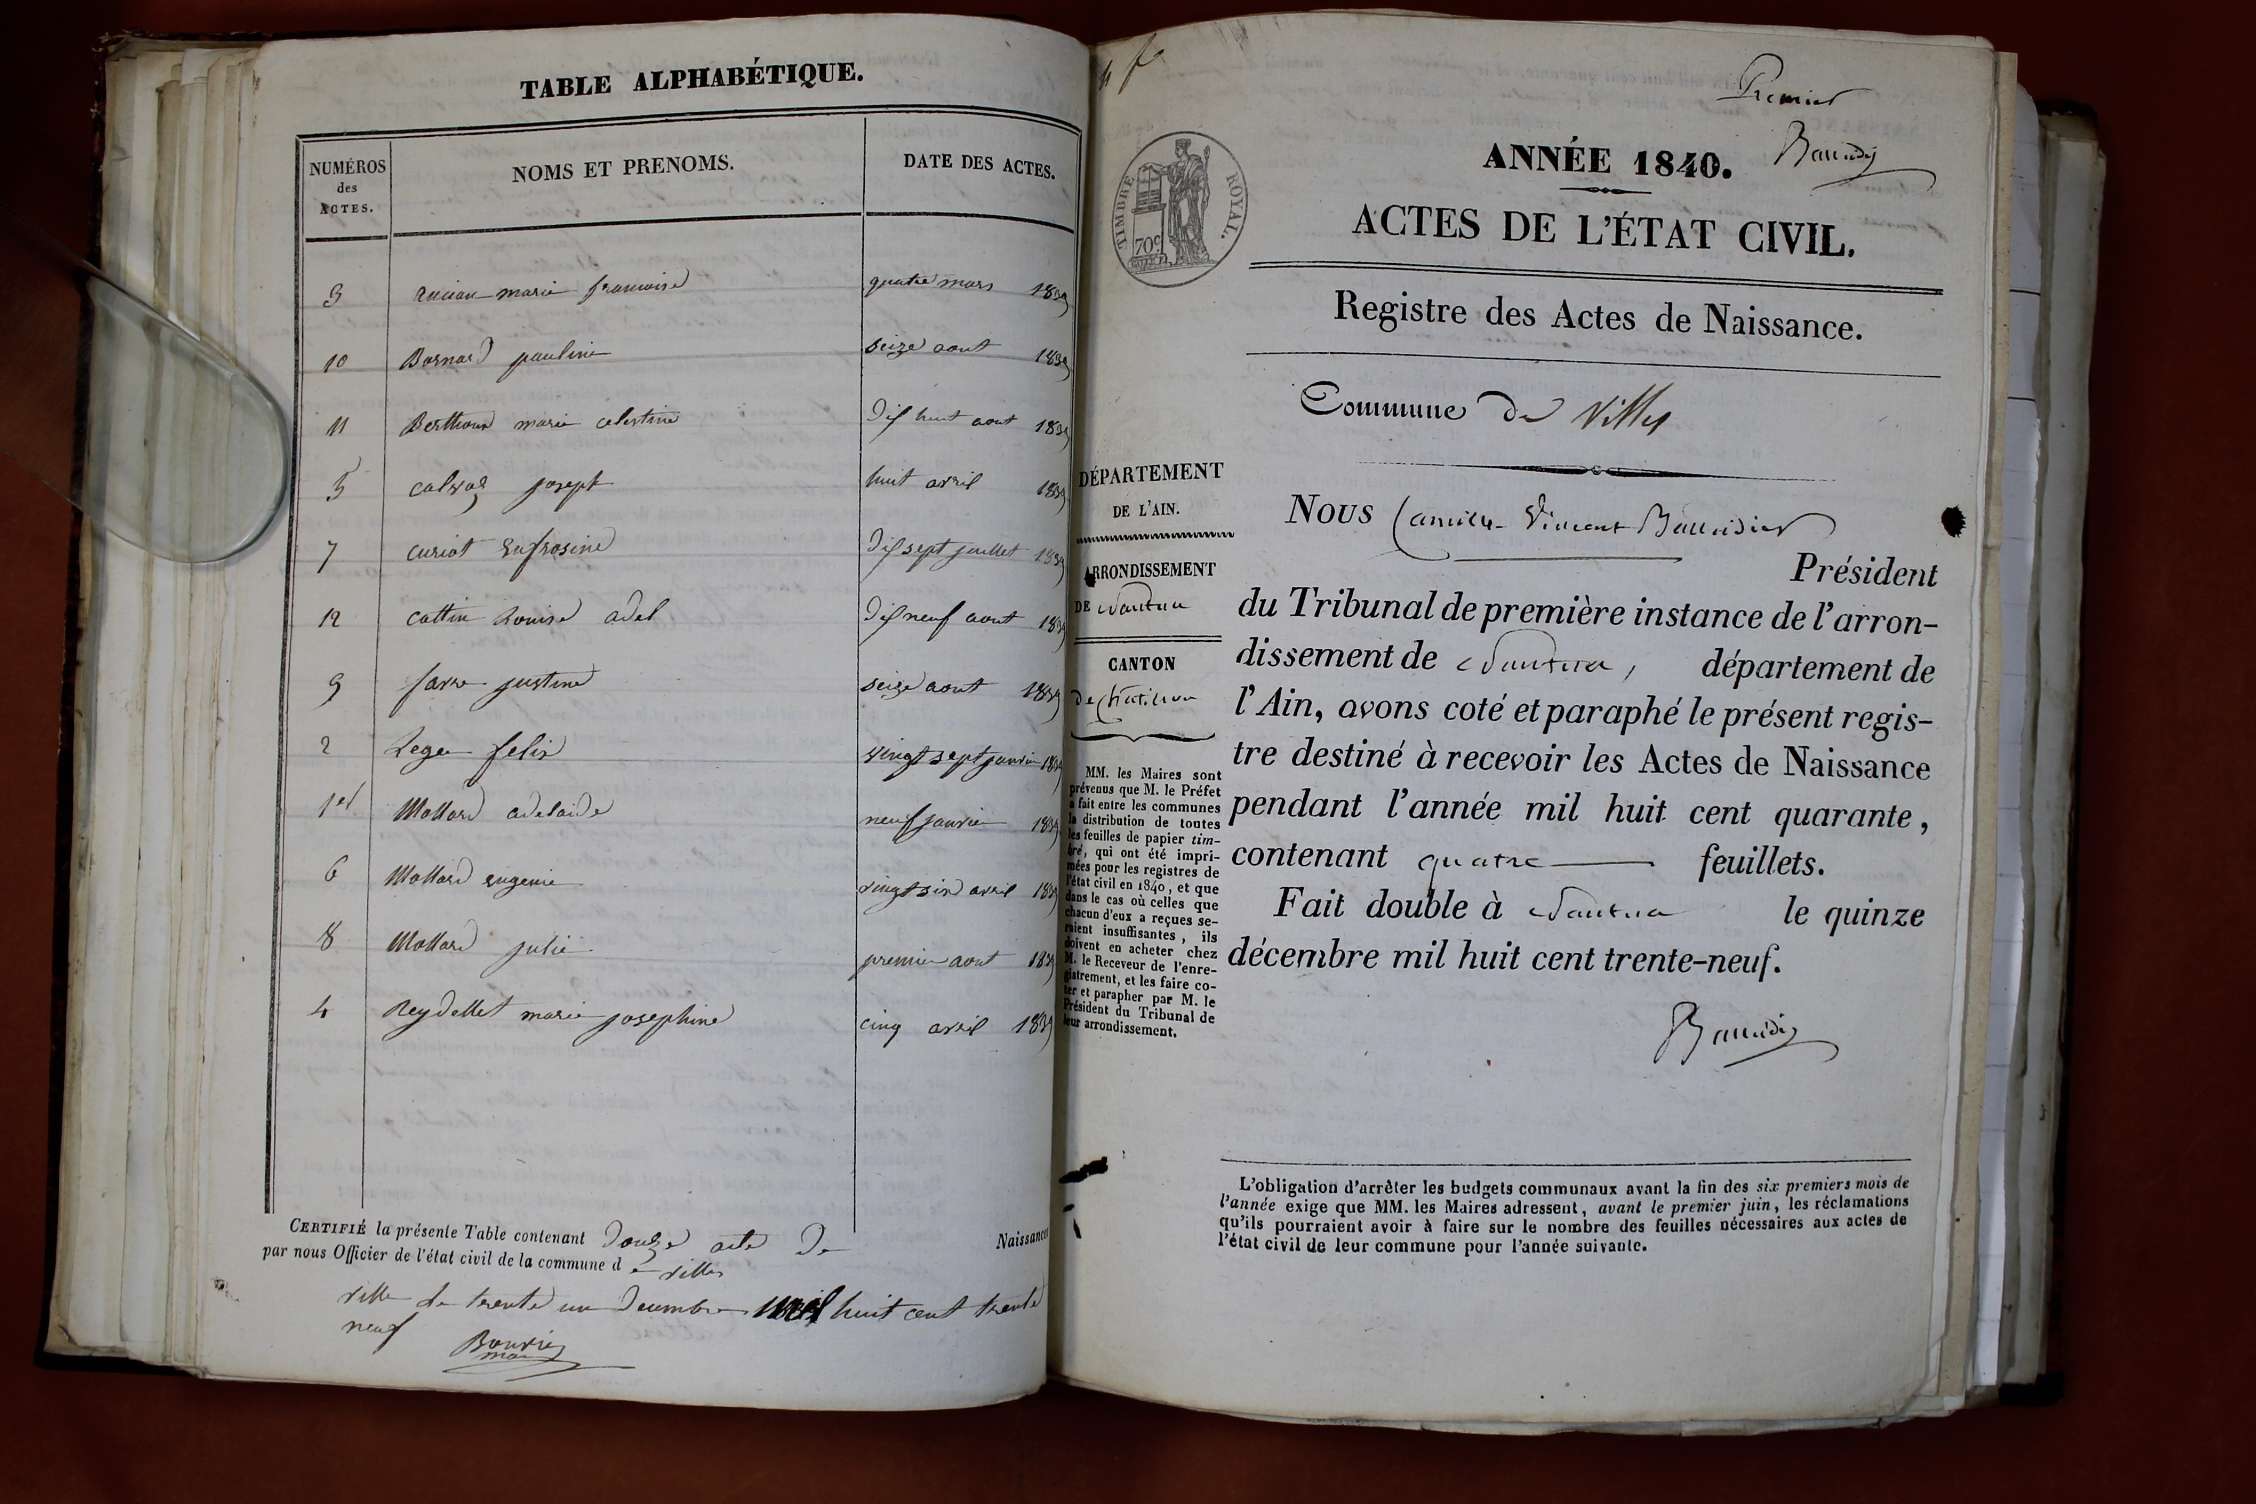 TABLE ALPHABÉTIQUE.
NUMÉROS des ACTES.
NOMS ET PRENOMS.
DATE DES ACTES.
3 marie francoise quatre mars 1839
10 Bornard pauline seize aout 1839
11 Berthoud marie celestine dix huit aout 1839
5 joseph huit avril 1839
7 curiat Eufrosine dix sept juillet 1839
12 cottin Louise adel dix neuf aout 1839
9 favre justine seize aout 1839
2 Leger felix vingt sept janvier 1839
1er Mollard adelaide neuf janvier 1839
6 Mollard eugenie vingt six avril 1839
8 Mollard julie premier aout 1839
4 Reydellet marie josephine cinq avril 1839
CERTIFIÉ la présente Table contenant douze acte de Naissances
par nous Officier de l'état civil de la commune de villes
ville le trente un decembre mil huit cent trente
neuf
Bouvier
Premier
TIMBRE ROYAL.
70c
ANNÉE 1840.
ACTES DE L'ÉTAT CIVIL.
Registre des Actes de Naissance.
Commune de Villes
DÉPARTEMENT
DE L'AIN.
ARRONDISSEMENT
DE Nantua
CANTON
de Chatillon
MM. les Maires sont
prévenus que M. le Préfet
a fait entre les communes
la distribution de toutes
les feuilles de papier tim-
bré, qui ont été impri-
mées pour les registres de
l'état civil en 1840, et que
dans le cas où celles que
chacun d'eux a reçues se-
raient insuffisantes, ils
doivent en acheter chez
M. le Receveur de l'enre-
gistrement, et les faire co-
ter et parapher par M. le
Président du Tribunal de
leur arrondissement.
Nous Camille Vincent
Président
du Tribunal de première instance de l'arron-
dissement de Nantua, département de
l'Ain, avons coté et paraphé le présent regis-
tre destiné à recevoir les Actes de Naissance
pendant l'année mil huit cent quarante,
contenant quatre feuillets.
Fait double à Nantua le quinze
décembre mil huit cent trente-neuf.
L'obligation d'arrêter les budgets communaux avant la fin des six premiers mois de
l'année exige que MM. les Maires adressent, avant le premier juin, les réclamations
qu'ils pourraient avoir à faire sur le nombre des feuilles nécessaires aux actes de
l'état civil de leur commune pour l'année suivante.